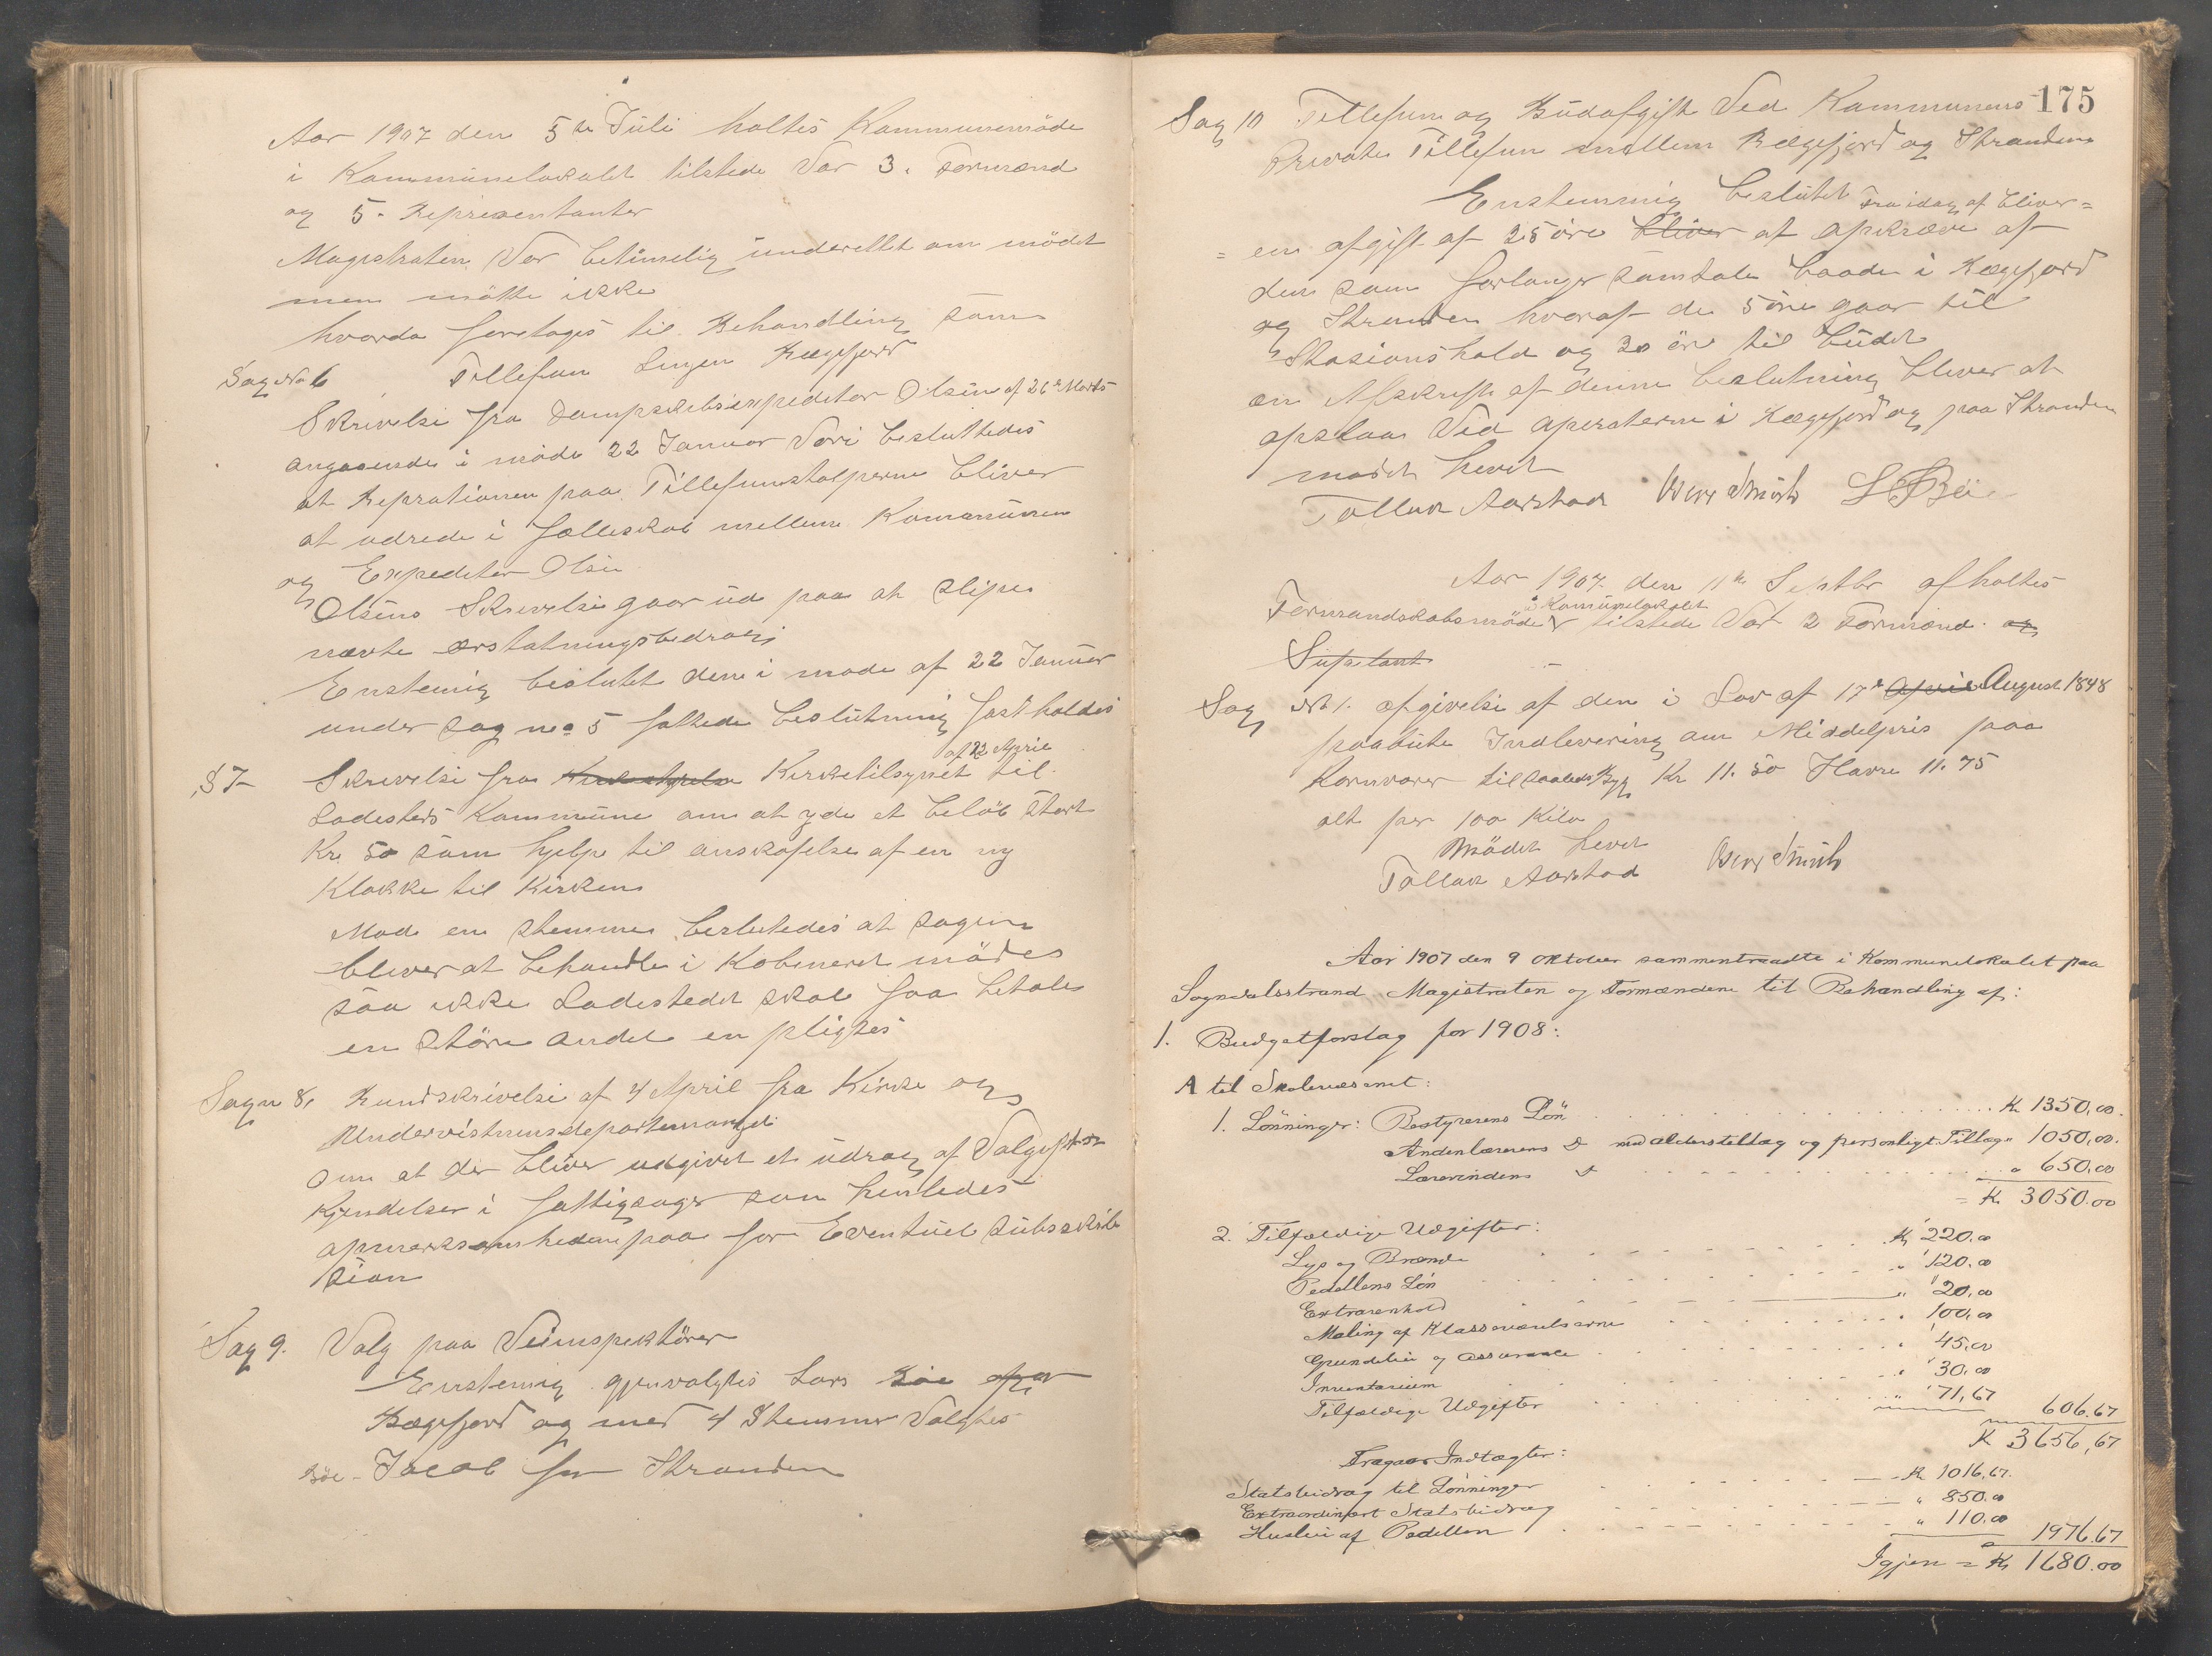 Aar 1907 den 5te Juli holtes Kommunemöde
i Kommunelokalet tilstede Var 3. Formænd
og 5. Representanter
Magistraten Var betimelig underettet om mödet
men mötte ikke
hvorda foretoges til Behandling som
Sag No 6 Tellefon Linjen Rægefjord
Skrivelse fra Dampskibsexpeditør Olsen af 26de Marts
angaaende i möde 22 Januar Vori besluttedes
at Reprationen paa Tillefunstolperne bliver
at udrede i fælleskab mellem Kommunen
og Expeditør Olsen
Olsens Skrivelse gaar ud paa at slipe
nævte erstatningsbedrag
Enstemig beslutet den i møde af 22 Januar
under sag no 5 fattede beslutning fastholdes
af 22 April
S 7 Skrivelse fra Kirketilsynet til
Ladesteds Kommune om at yde et beløb stort
Kr. 50 som hjelp til anskafelse af en ny
Klokke til Kirken
Mod en stemme beslutedes at sagen
bliver at behandle i Kobineret mödes
saa ikke Ladestedet skal faa betale
en större andel en pligtes
Sag n 8, Rundskrivelse af 4 April fra Kirke og
Undervisningsdepartemangde
om at der bliver udgivet et udrag af
Kjendelser i fattigsager som henledes
opmerksomheden paa for Eventuel subsskrib
sion
Sag 9. Valg paa Veiinspektörer
Enstemig gjenvalgtes Lars Böe for
Rægefjord og med 4 Stemmer Valgtes
Böe - Jacob for Stranden
175
Sag 10 Tellefun og Budafgift Ved Kommunens
Private Tillefun mellem Rægefjord og Stranden
Enstemmig beslutet Fra idag af bliver =
= en afgift af 25 öre bliver at opkræve af
den som forlanger samtale baade i Rægefjord
og Stranden hvoraf de 5 öre gaar til
Stasionshold og 20 öre til budet
en Afskrift af denne beslutning bliver at
opslaa Ved aperaterne i Rægefjord og paa Stranden
mödet hevet
Tollak Aarstad
Aar 1907 den 11te Septbr afholtes
i Kommunelokalet
Formandskabsmöde tilstede Var 2 Formænd. og
Supelant
Sag No 1. afgivelse af den i Lov af 17de April August 1848
paabute Indlevering om Middelpris paa
Kornvarer til saaledes Byg Kr 11.50 Havre 11.75
alt per 100 Kilo
Mödet hevet
Tollak Aarstad
Aar 1907 den 9 Oktober sammentraadte i Kommunelokalet paa
Sogndalsstrand Magistraten og Formændene til Behandling af:
1. Budgetforslag for 1908:
A til Skolevæsenet:
1. Lønninger: Bestyrerens Løn . . . K. 1350,00.
Andenlærerens Do med alderstillæg og personligt Tillæg " 1050,00.
Lærerindens Do . . . " 650,00
= K. 3050.00
2. Tilfældige Udgifter:
Lys og Brænde . . . K. 220.00
Pedellens Løn . . . " 120.00
Extrarenhold . . . " 20,00
Maling af Klasseværelserne . . . " 100,00
Grundleie og Assurance . . . " 45.00
Inventarium . . . " 30,00
Tilfældige Udgifter . . . " 71,67 606.67
K 3656,67
Fragaar Indtægter:
Statsbidrag til Lønninger . . . K. 1016,67.
Extraordinært Statsbidrag . . . " 850.00
Husleie af Pedellen . . . " 110.00 1976.67
Igjen = K 1680.00